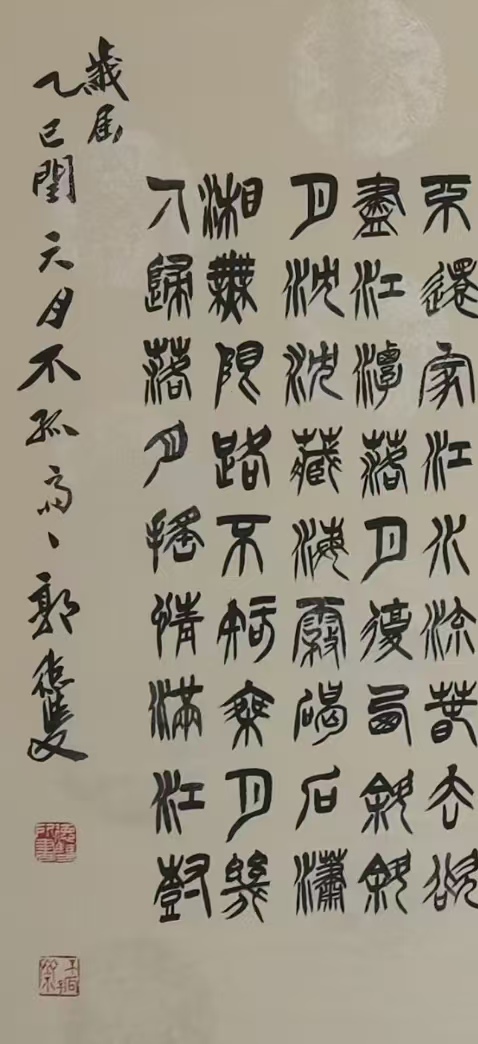 不還家江水流春去欲
盡江潭落月復西斜斜
月沈沈藏海霧碣石瀟
湘無限路不知乘月幾
人歸落月搖情滿江樹
歲屆
乙巳閏六月不孤郭